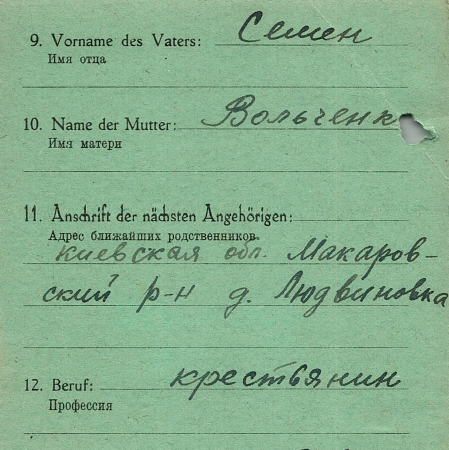 9. Vorname des Vaters: Семен
Имя отца
10. Name der Mutter: Вольченк
Имя матери
11. Anschrift der nächsten Angehörigen:
Адрес ближайших родственников.
Киевская обл. Макаров-
ский р-н д. Людвиновка
12. Beruf: крестьянин
Профессия